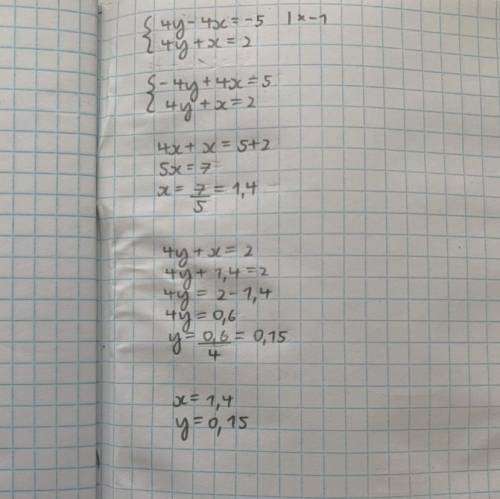 { 4y - 4x = -5 | x -1
4y + x = 2
{ -4y + 4x = 5
4y + x = 2
4x + x = 5+2
5x = 7
x = 7/5 = 1,4
4y + x = 2
4y + 1,4 = 2
4y = 2 - 1,4
4y = 0,6
y = 0,6/4 = 0,15
x = 1,4
y = 0,15